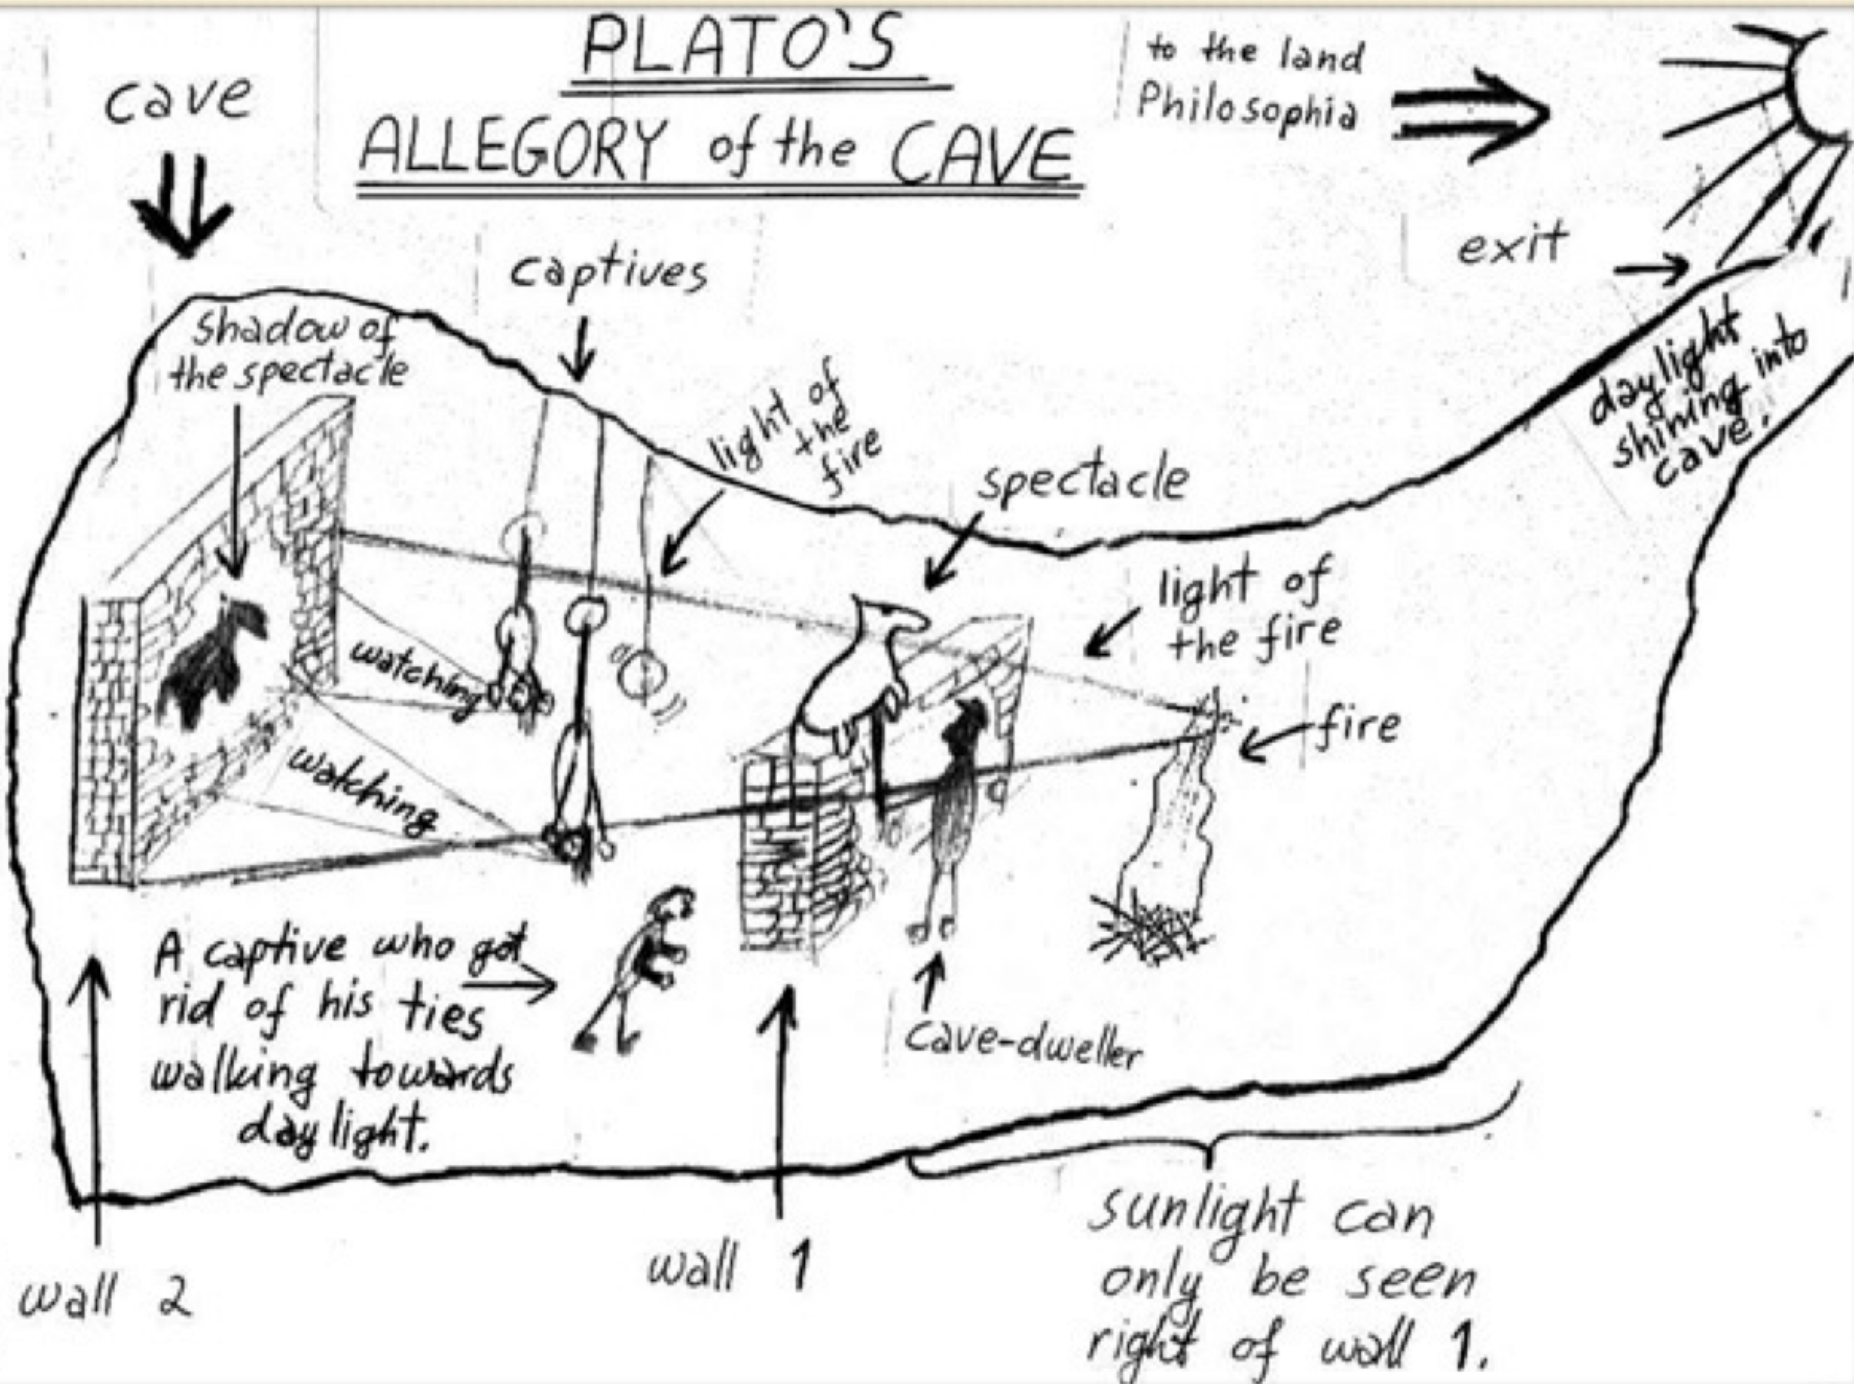 PLATO'S
ALLEGORY of the CAVE
to the land
Philosophia
cave
exit
captives
shadow of
the spectacle
light of
the
fire
spectacle
daylight
shining into
cave.
light of
the fire
fire
watching
watching
A captive who got
rid of his ties
walking towards
daylight.
cave-dweller
wall 2
wall 1
sunlight can
only be seen
right of wall 1.